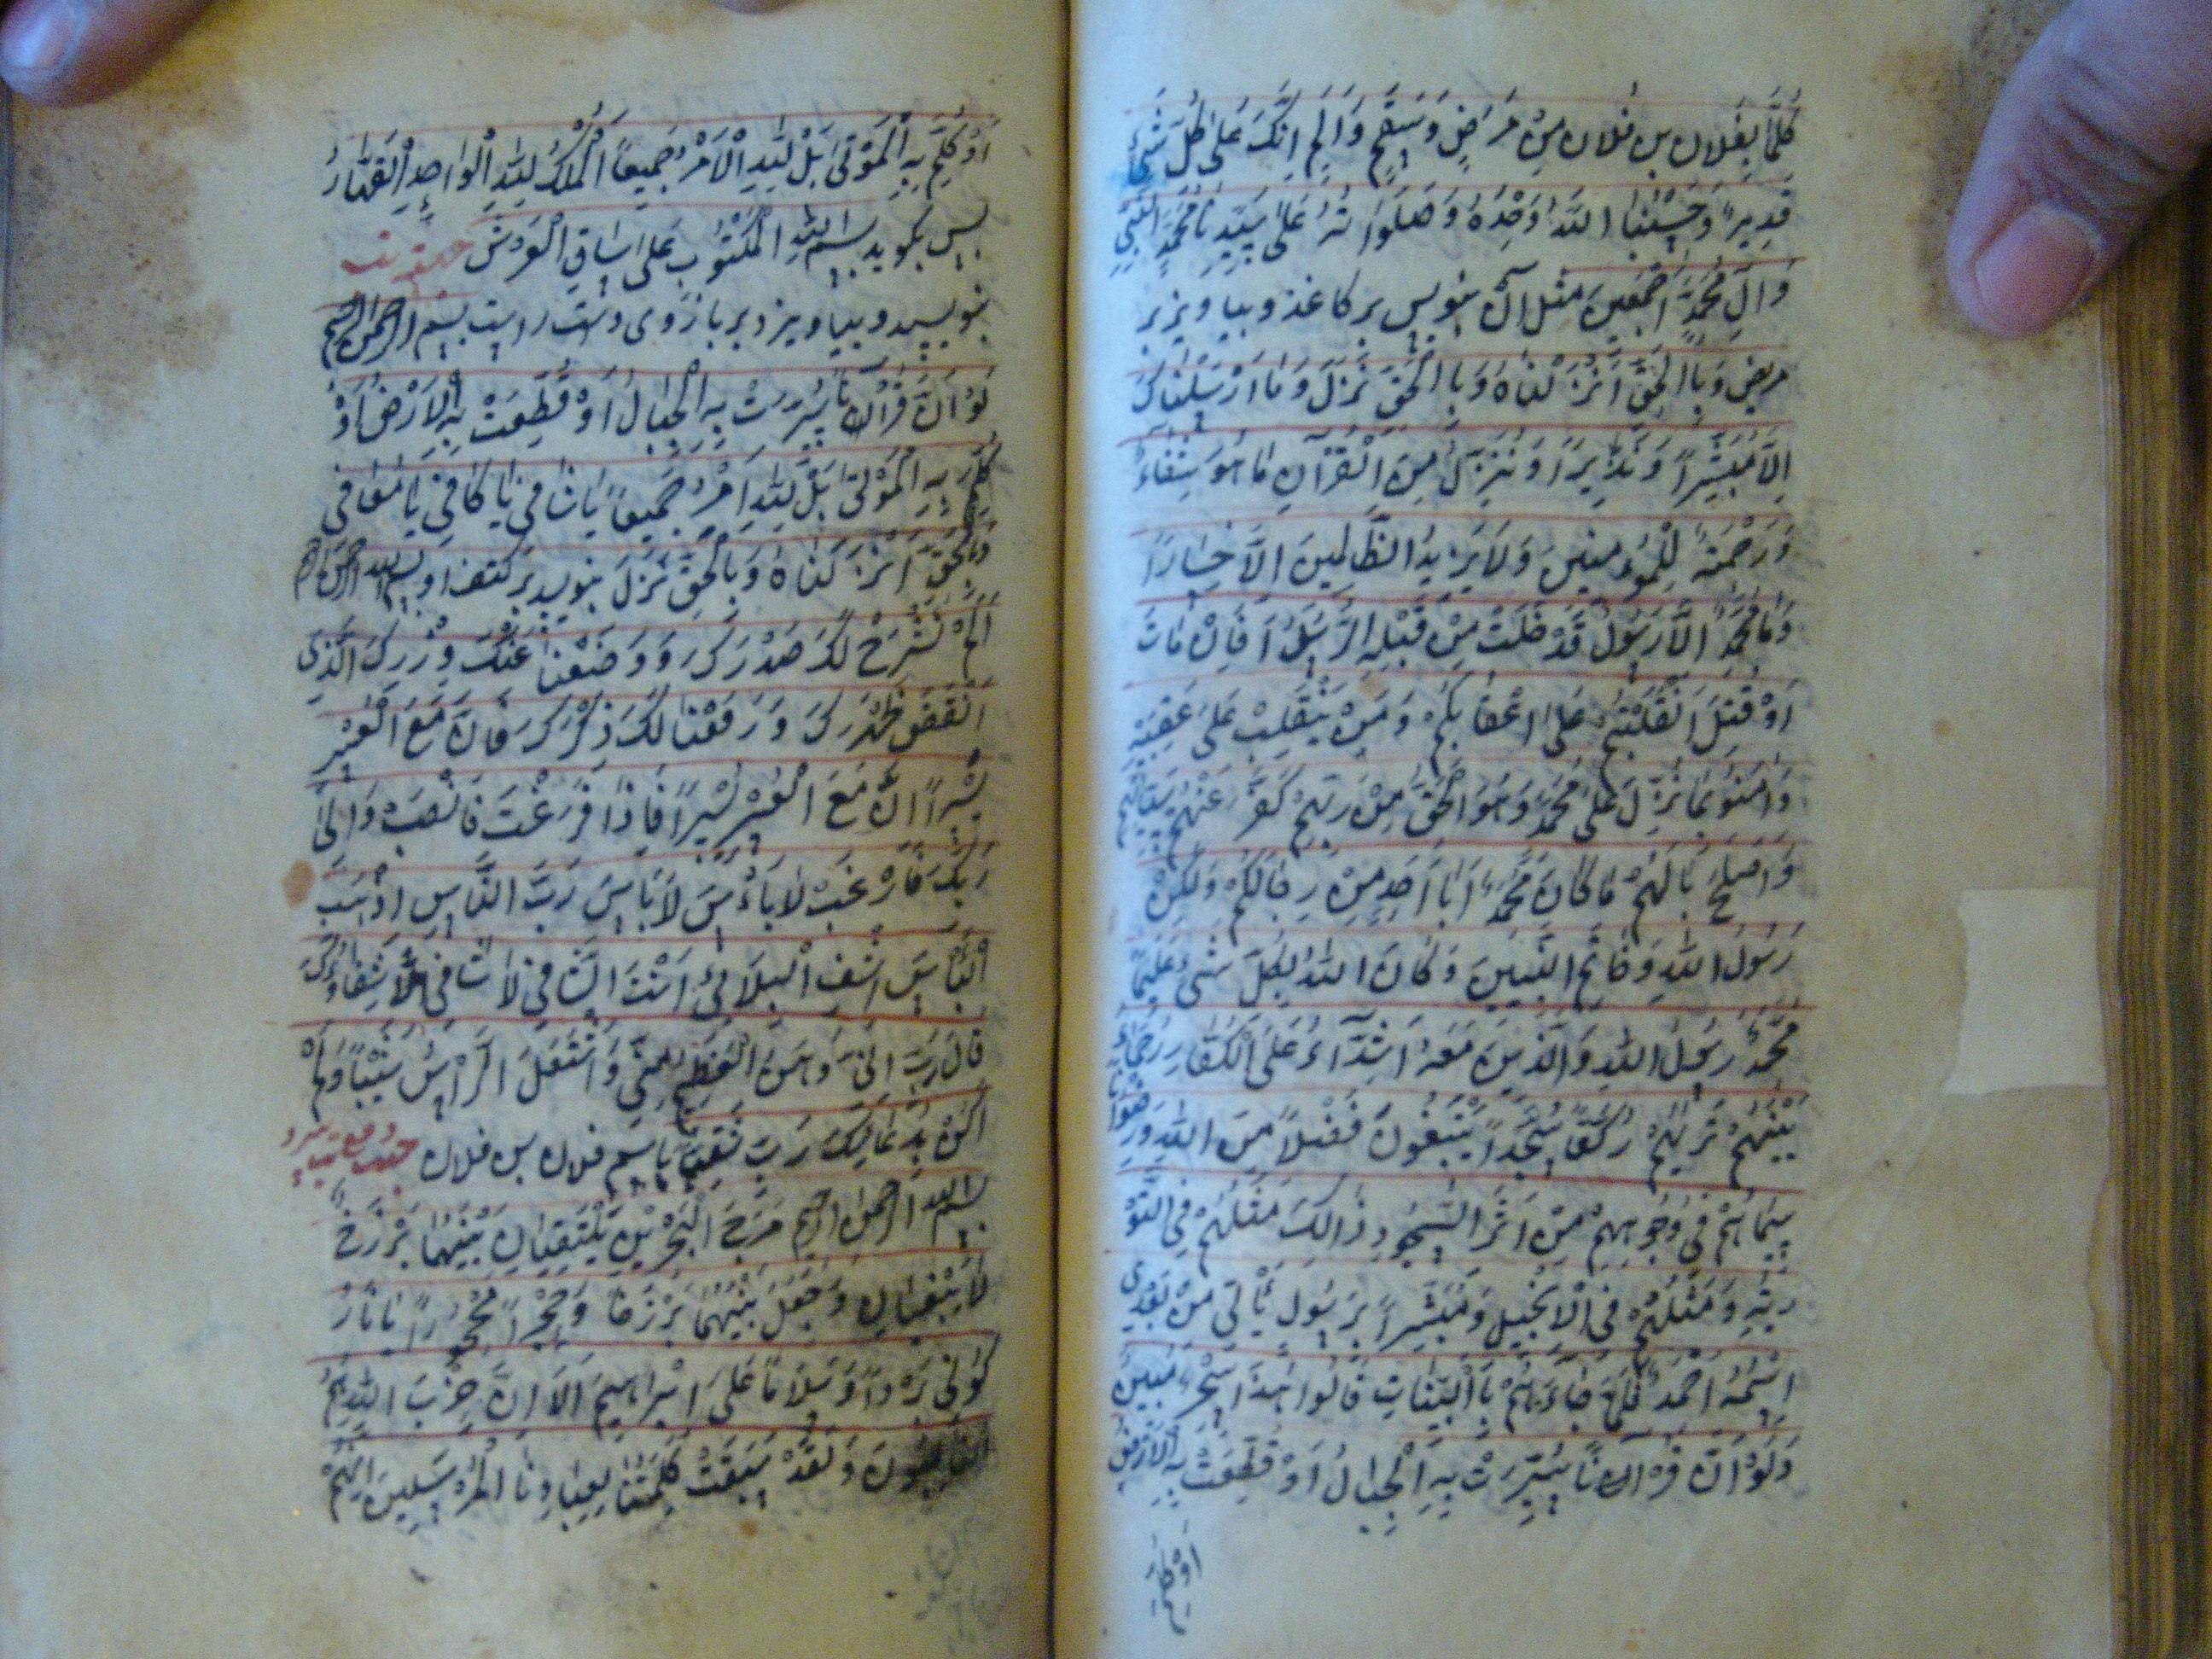 كُلَّمَا بِفُلَانِ بْنِ فُلَانٍ مِنْ مَرَضٍ وَسَقَمٍ وَاَلَمٍ اِنَّكَ عَلٰى كُلِّ شَیْءٍ
قَدِيرٌ وَحَسْبُنَا اللهُ وَحْدَهُ وَصَلَوَاتُهُ عَلٰى سَيِّدِنَا مُحَمَّدٍ النَّبِيِّ
وَآلِ مُحَمَّدٍ اَجْمَعِينَ مثل آن بنویس بر کاغذ و بیاویز بر
مریض وَبِاالْحَقِّ اَنْزَلْنَاهُ وَبِاالْحَقِّ نَزَلَ وَمَا اَرْسَلْنَاكَ
اِلَّا مُبَشِّرًا وَنَذِيرًا وَنُنَزِّلُ مِنَ الْقُرْآنِ مَا هُوَ شِفَاءٌ
وَرَحْمَةٌ لِلْمُؤْمِنِينَ وَلَا يَزِيدُ الظَّالِمِينَ اِلَّا خَسَارًا
وَمَا مُحَمَّدٌ اِلَّا رَسُولٌ قَدْ خَلَتْ مِنْ قَبْلِهِ الرُّسُلُ اَفَاِنْ مَاتَ
اَوْ قُتِلَ انْقَلَبْتُمْ عَلٰى اَعْقَابِكُمْ وَمَنْ يَنْقَلِبْ عَلٰى عَقِبَيْهِ
وَآمَنُوا بِمَا نُزِّلَ عَلٰى مُحَمَّدٍ وَهُوَ الْحَقُّ مِنْ رَبِّهِمْ كَفَّرَ عَنْهُمْ سَيِّاٰتِهِمْ
وَاَصْلَحَ بَالَهُمْ مَا كَانَ مُحَمَّدٌ اَبَا اَحَدٍ مِنْ رِجَالِكُمْ وَلٰكِنْ
رَسُولَ اللهِ وَخَاتَمَ النَّبِيِّينَ وَكَانَ اللهُ بِكُلِّ شَیْءٍ عَلِيمًا
مُحَمَّدٌ رَسُولُ اللهِ وَالَّذِينَ مَعَهُ اَشِدَّآءُ عَلَى الْكُفَّارِ رُحَمَاءُ
بَيْنَهُمْ تَرٰيهُمْ رُكَّعًا سُجَّدًا يَبْتَغُونَ فَضْلًا مِنَ اللهِ وَرِضْوَانًا
سِيمَاهُمْ فِي وُجُوهِهِمْ مِنْ اَثَرِ السُّجُودِ ذَالِكَ مَثَلُهُمْ فِي التَّوْ
رٰيةِ وَمَثَلُهُمْ فِي الْاِنْجِيلِ وَمُبَشِّرًا بِرَسُولٍ يَأْتِي مِنْ بَعْدِي
اسْمُهُ اَحْمَدُ فَلَمَّا جَاءَهُمْ بِاالْبَيِّنَاتِ قَالُوا هٰذَا سِحْرٌ مُبِينٌ
وَلَوْ اَنَّ قُرْآنًا سُيِّرَتْ بِهِ الْجِبَالُ اَوْ قُطِّعَتْ بِهِ الْاَرْضُ
اَوْ كُلِّمَ
اَوْ كُلِّمَ بِهِ الْمَوْتٰى بَلْ لِلّٰهِ الْاَمْرُ جَمِيعًا اَلْمُلْكُ لِلّٰهِ الْوَاحِدِ الْقَهَّارِ
پس بگوید بِسْمِ اللهِ الْمَكْتُوبِ عَلٰى سَاقِ الْعَرْشِ جهة تب
بنویسد و بیاویزد بر بازوی دست راست بسم الله الرحمن الرحیم
لَوْ اَنَّ قُرْآنًا سُيِّرَتْ بِهِ الْجِبَالُ اَوْ قُطِّعَتْ بِهِ الْاَرْضُ اَوْ
كُلِّمَ بِهِ الْمَوْتٰى بَلْ لِلّٰهِ اَمْرُ جَمِيعًا يَا شَافِي يَا كَافِي يَا مُعَافِي
وَبِالْحَقِّ اَنْزَلْنَاهُ وَبِالْحَقِّ نَزَلَ بنوید بر کتف او بسم الله الرحمن الرحیم
اَلَمْ نَشْرَحْ لَكَ صَدْرَكَ وَوَضَعْنَا عَنْكَ وِزْرَكَ الَّذِي
اَنْقَضَ ظَهْرَكَ وَرَفَعْنَا لَكَ ذِكْرَكَ فَاِنَّ مَعَ الْعُسْرِ
يُسْرًا اِنَّ مَعَ الْعُسْرِ يُسْرًا فَاِذَا فَرَغْتَ فَانْصَبْ وَاِلٰى
رَبِّكَ فَارْغَبْ لَا بَأْسَ لَا بَأْسَ رَبَّ النَّاسِ اَذْهِبِ
الْبَأْسَ اشْفِ الْبَلَاءَ اَنْتَ الشَّافِي لَا شَافِي اِلَّا شِفَاؤُكَ
قَالَ رَبِّ اِنِّي وَهَنَ الْعَظْمُ مِنِّي وَاشْتَعَلَ الرَّأْسُ شَيْبًا وَلَمْ
اَكُنْ بِدُعَائِكَ رَبِّ شَقِيًّا بِاسْمِ فلان بن فلان جهة دفع تب سرد
بسم الله الرحمن الرحیم مَرَجَ الْبَحْرَيْنِ يَلْتَقِيَانِ بَيْنَهُمَا بَرْزَخٌ
لَا يَبْغِيَانِ وَجَعَلَ بَيْنَهُمَا بَرْزَخًا وَحِجْرًا مَحْجُورًا يَا نَارُ
كُونِي بَرْدًا وَسَلَامًا عَلٰى اِبْرَاهِيمَ اَلَا اِنَّ حِزْبَ اللهِ هُمُ
وَلَقَدْ سَبَقَتْ كَلِمَتُنَا لِعِبَادِنَا الْمُرْسَلِينَ اِنَّهُمْ